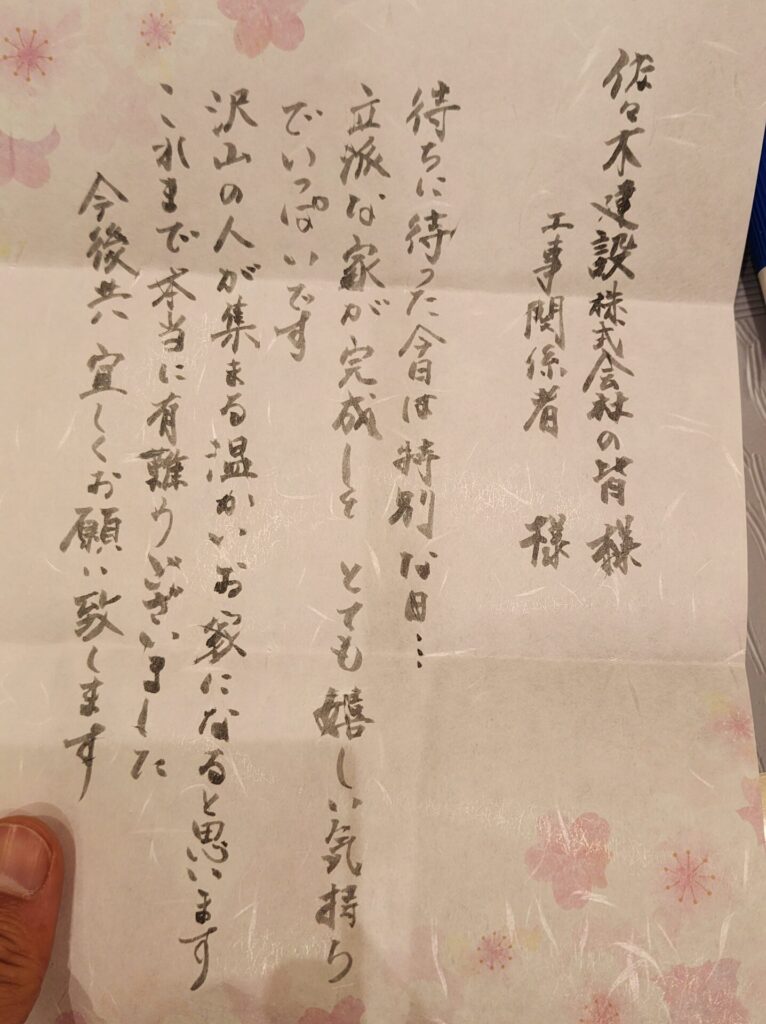 佐々木建設株式会社の皆様
工事関係者 様
待ちに待った今日は特別な日…
立派な家が完成しを とても嬉しい気持ち
でいっぱいです
沢山の人が集まる温かいお家になると思います
これまで本当に有難うございました
今後共 宜しくお願い致します